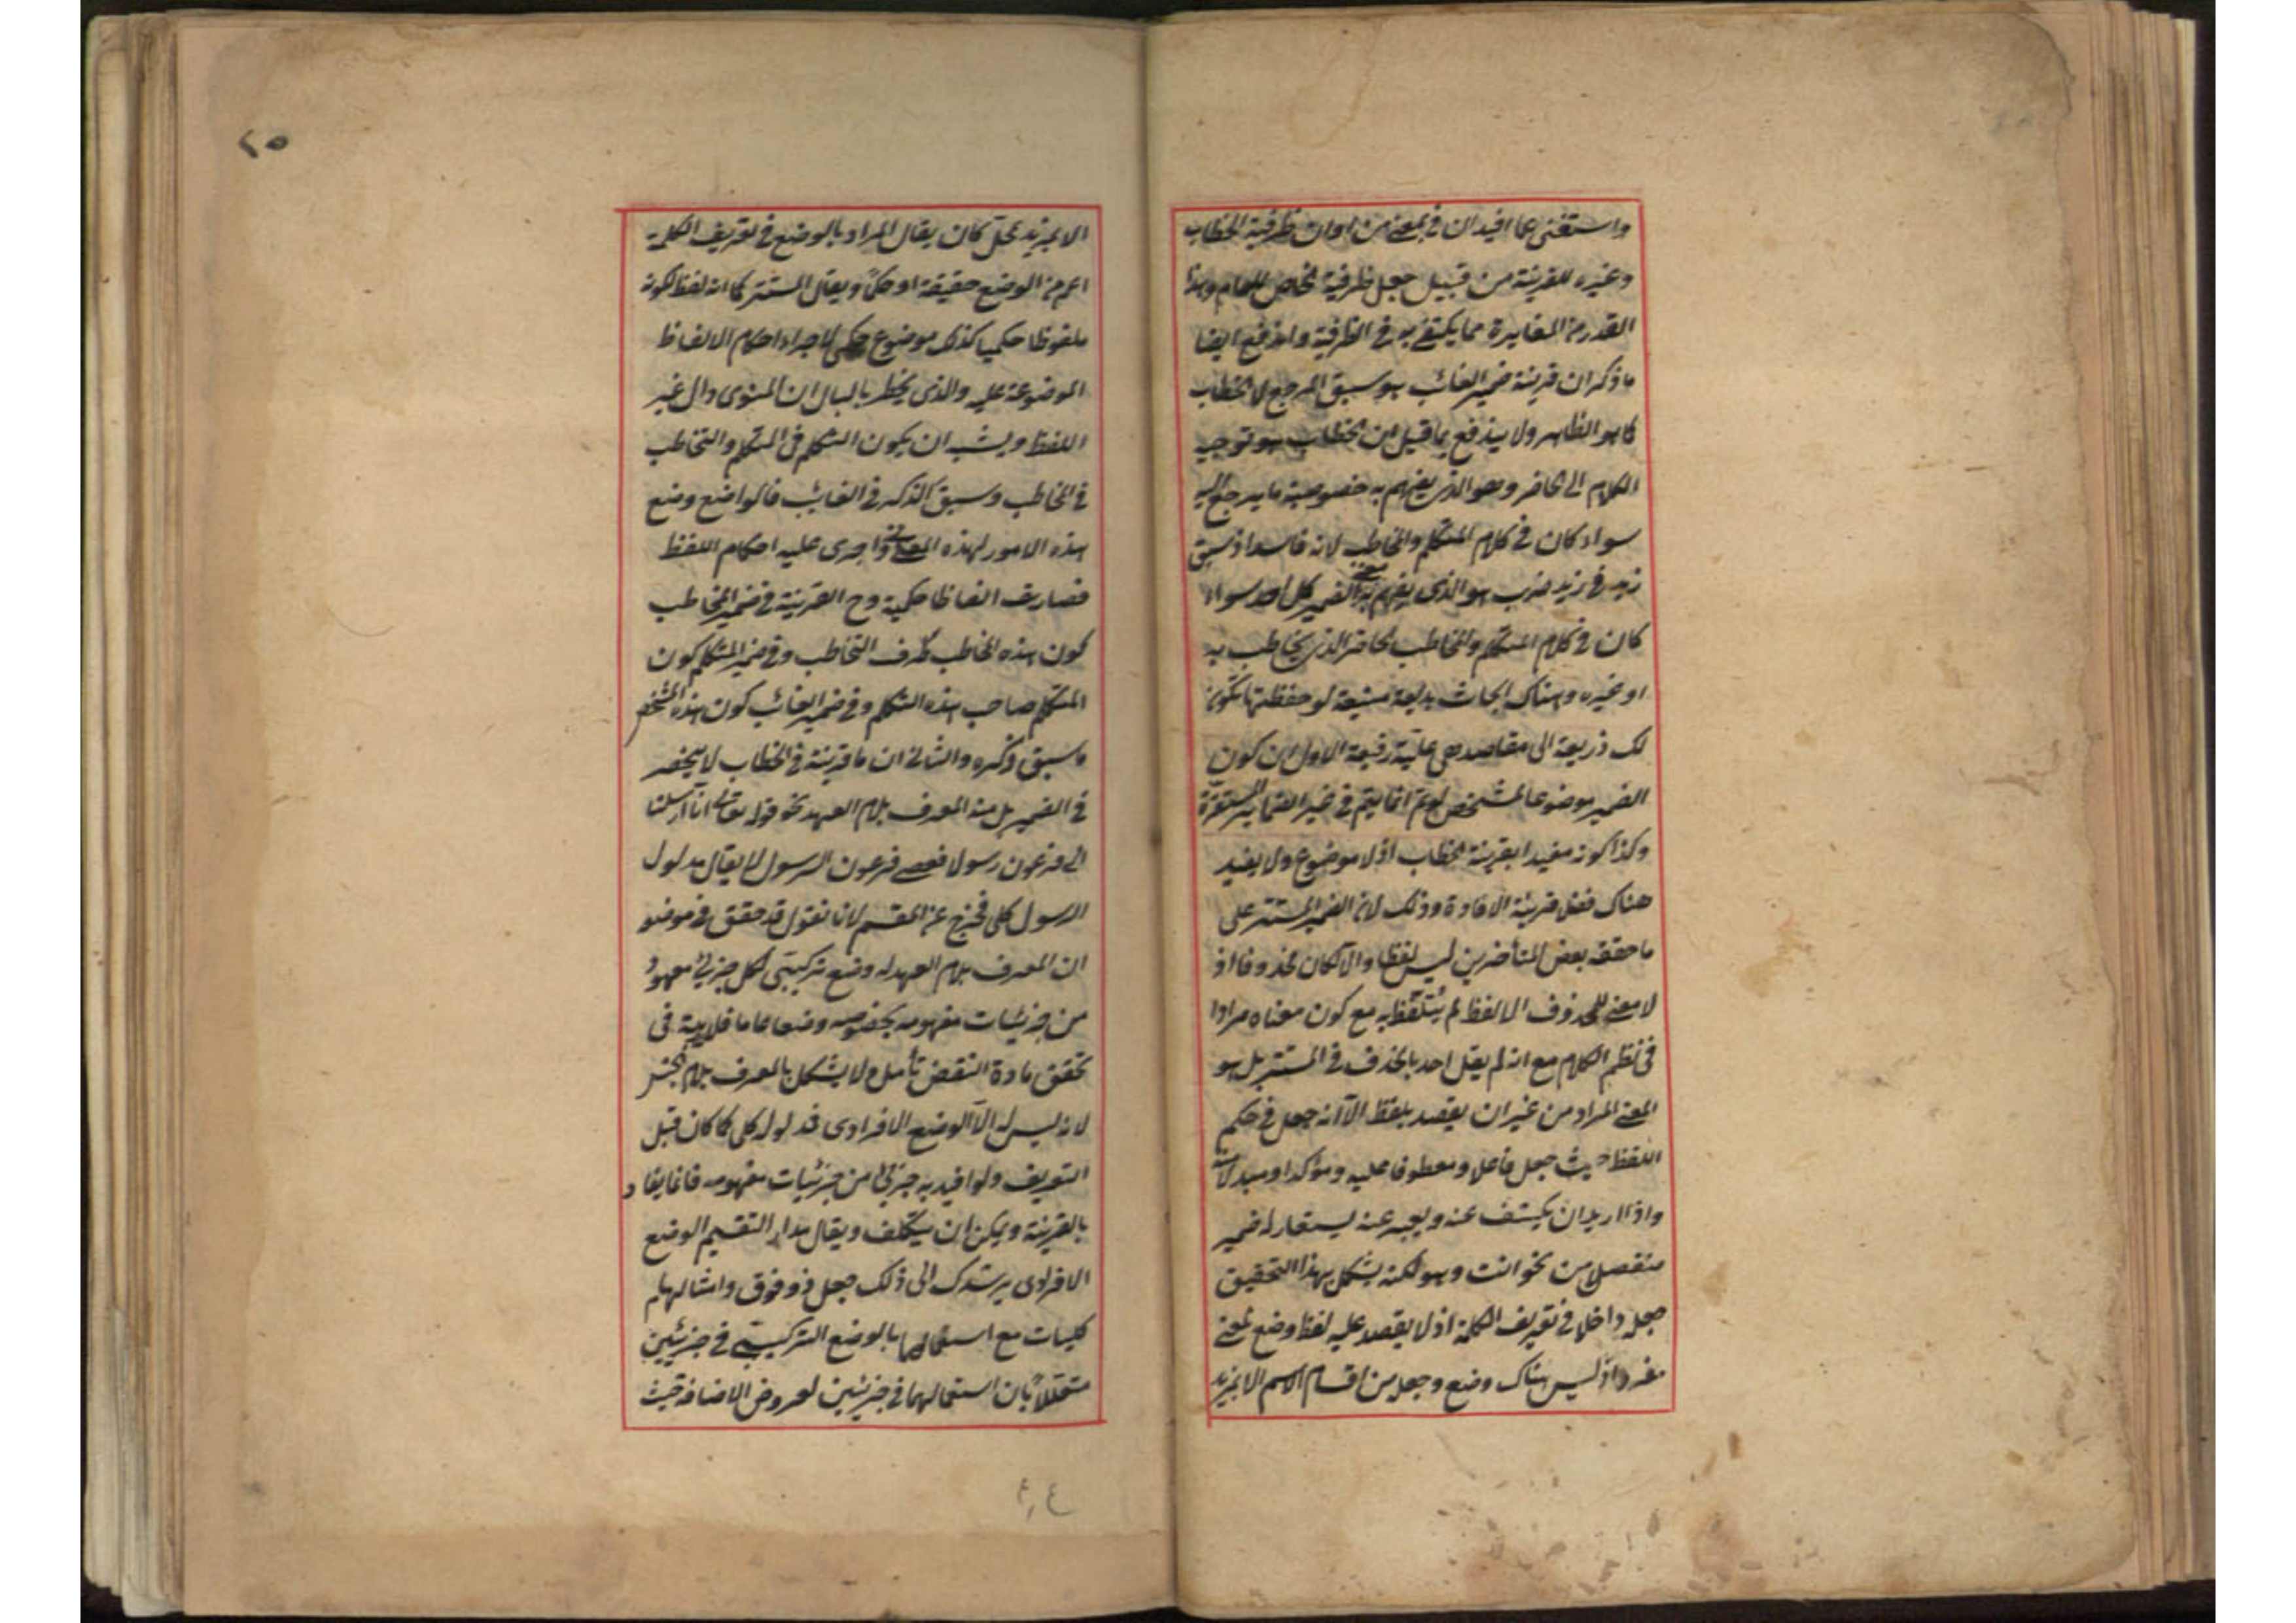 واستغنى عما افيد ان في بمعنى من او ان ظرفية الخطاب
وغيره للقرينة من قبيل جعل ظرفية الخاص للعام وهذا
القدر من المغايرة مما يكتفى به في الظرفية واندفع ايضا
ما ذكر ان قرينة ضمير الغائب هو سبق المرجع لا الخطاب
كما هو الظاهر ولا يندفع بما قيل ان الخطاب هو توجيه
الكلام الى الحاضر وهو الذي يفهم به خصوصية ما يرجع اليه
سواء كان في كلام المتكلم والمخاطب لانه فاسد اذ سبق
زيد في زيد ضرب هو الذي يفهم به معنى الضمير كل احد سواء
كان في كلام المتكلم والمخاطب الحاضر الذي يخاطب به
او غيره وهناك ابحاث بديعة منيعة لو حفظتها تكون
لك ذريعة الى مقاصد هي علية رفيعة الاول ان كون
الضمير موضوعا لمشخص لو تم انما يتم في غير الضماير المستترة
وكذا كونه مفيدا بقرينة الخطاب اذ لا موضوع ولا يفيد
هناك فضل قرينة الافادة وذلك لان الضمير المستتر على
ما حققه بعض المتأخرين ليس لفظا والا لكان محذوفا اذ
لا معنى للمحذوف الا لفظ لم يتلفظ به مع كون معناه مرادا
في نظم الكلام مع انه لم يقل احد بالحذف في المستتر بل هو
المعنى المراد من غير ان يقصد بلفظ الا انه جعل في حكم
اللفظ حيث جعل فاعلا ومعطوفا عليه ومؤكدا ومبدلا منه
واذا اريد ان يكشف عنه ويعبر عنه يستعار له ضمير
منفصل من نحو انت وهو لكنه يشكل بهذا التحقيق
جعله داخلا في تعريف الكلمة اذ لا يصدق عليه لفظ وضع لمعنى
مفرد اذ ليس هناك وضع وجعل من اقسام الاسم الا بمزيد
الا بمزيد تمحل كان يقال المراد بالوضع في تعريف الكلمة
اعم من الوضع حقيقة او حكما ويقال المستتر كما انه لفظ لكونه
ملفوظا حكميا كذلك موضوع حكمي لاجراء احكام الالفاظ
الموضوعة عليه والذي يخطر بالبال ان المنوى دال غير
اللفظ ويشبه ان يكون التكلم في المتكلم والتخاطب
في المخاطب وسبق الذكر في الغائب فالواضع وضع
هذه الامور لهذه المعاني واجرى عليه احكام اللفظ
فصارت الفاظا حكمية وح القرينة في ضمير المخاطب
كون هذه المخاطب طرف التخاطب وفي ضمير المتكلم كون
المتكلم صاحب هذه التكلم وفي ضمير الغائب كون هذه الشخص
ما سبق ذكره والثاني ان ما قرينة في الخطاب لا ينحصر
في الضمير بل منه المعرف بلام العهد نحو قوله تعالى انا ارسلنا
الى فرعون رسولا فعصى فرعون الرسول لا يقال مدلول
الرسول كلى فخرج عن المقسم لانا نقول قد حقق في موضعه
ان المعرف بلام العهد له وضع تركيبي لكل جزئي معهود
من جزئيات مفهومه بخصوصه وضعا عاما فلا ريبة في
تحقق مادة النقض تأمل ولا يشكل بالمعرف بلام الجنس
لانه ليس له الا الوضع الافرادى فمدلوله كلى كما كان قبل
التعريف ولو افيد به جزئي من جزئيات مفهومه فانما يفاد
بالقرينة ويمكن ان يتكلف ويقال مدار التقسيم الوضع
الافرادى يرشدك الى ذلك جعل ذو وفوق وامثالهما
كليات مع استعمالهما بالوضع التركيبي في جزئيين
متعللا بان استعمالهما في جزئيين لعروض الاضافة حيث
٢٥